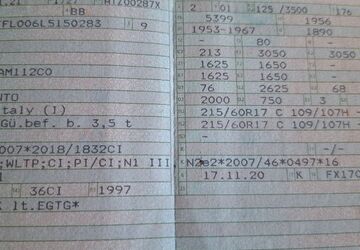 BB
FL006L5150283 9
AM112CO
NTO
taly (I)
Gü.bef. b. 3,5 t
007*2018/1832CI
;WLTP;CI;PI/CI;N1 III,
36CI 1997
lt.EGTG*
2 01 125 /3500 176
5399 1956
1953-1967 1890
- 80 -
213 3050 3050
1625 1650 -
1625 1650 -
76 2625 68
2000 750 3
215/60R17 C 109/107H -
215/60R17 C 109/107H -
-/--
N2*2007/46*0497*16
17.11.20 K FX170